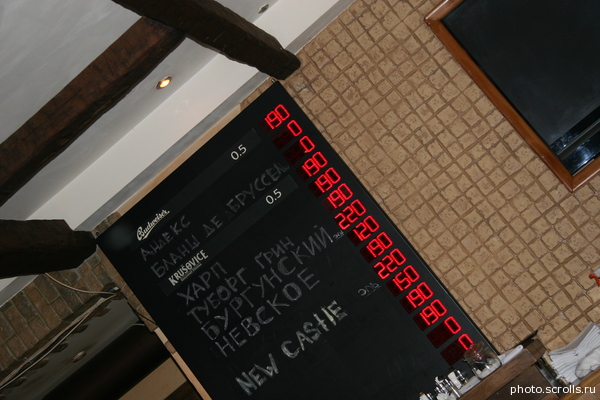 Budweiser 0.5 190
АНДЕКС 0
БЛАНШ ДЕ БРУССЕЛ 0
KRUSOVICE 0.5 190
ХАРП 190
ТУБОРГ ГРИН 190
БУРГУНСКИЙ 220
НЕВСКОЕ 120
190
NEW CASTLE 220
150
190
190
0
0
photo.scrolls.ru